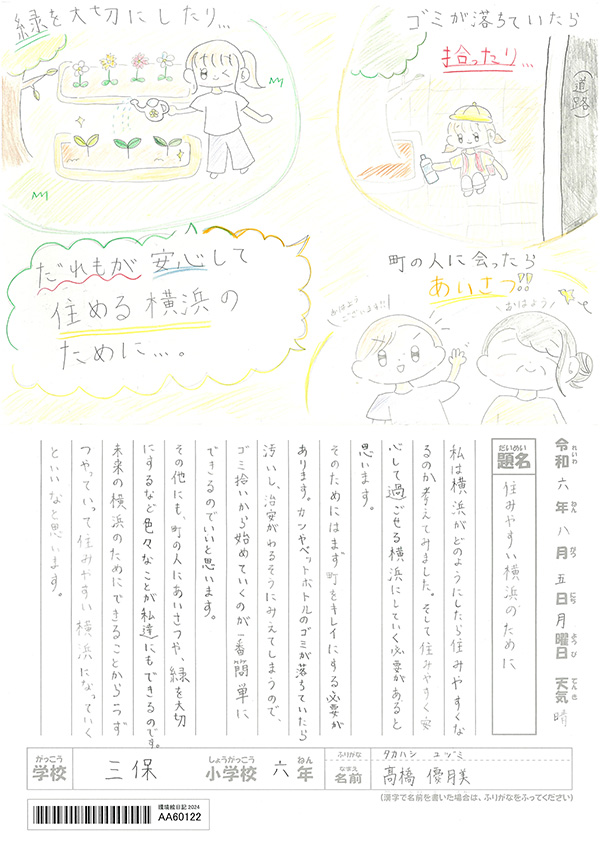 緑を大切にしたり…
ゴミが落ちていたら
拾ったり…
(道路)
だれもが安心して
住める横浜の
ために…。
町の人に会ったら
あいさつ!!
おはよう
ございます!!
おはよう
令和六年八月五日月曜日 天気 晴
れいわ ねん がつ にち ようび てんき
だいめい
題名
住みやすい横浜のために
私は横浜がどのようにしたら住みやすくな
るのか考えてみました。そして住みやすく安
心して過ごせる横浜にしていく必要があると
思います。
そのためにはまず町をキレイにする必要が
あります。カンやペットボトルのゴミが落ちていたら
汚いし、治安がわるそうにみえてしまうので、
ゴミ拾いから始めていくのが一番簡単に
できるのでいいと思います。
その他にも、町の人にあいさつや、緑を大切
にするなど色々なことが私達にもできるのです。
未来の横浜のためにできることから少しず
つやっていって住みやすい横浜になっていく
といいなと思います。
がっこう
学校
三保
しょうがっこう
小学校
六
ねん
年
ふりがな
タカハシ ユヅミ
なまえ
名前
髙橋 優月美
(漢字で名前を書いた場合は、ふりがなをふってください)
環境絵日記2024
AA60122